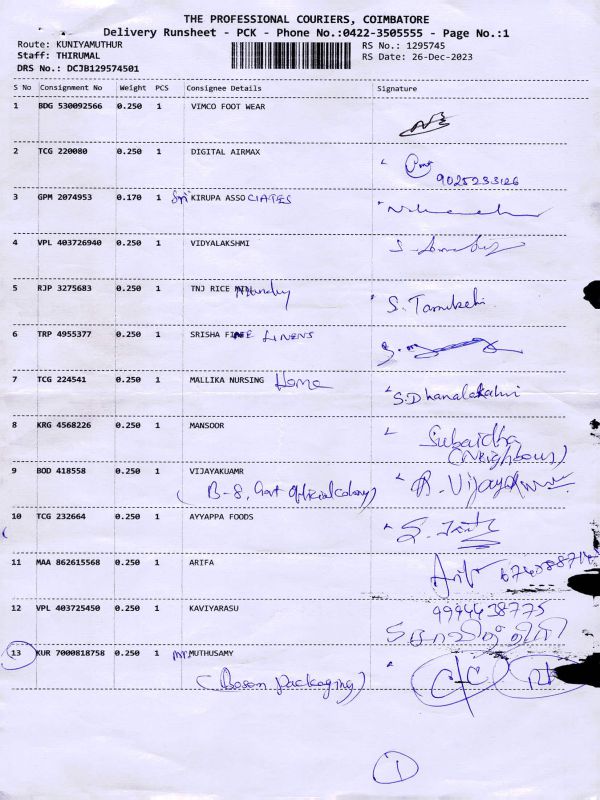 THE PROFESSIONAL COURIERS, COIMBATORE
Delivery Runsheet - PCK - Phone No.:0422-3505555 - Page No.:1
Route: KUNIYAMUTHUR RS No.: 1295745
Staff: THIRUMAL RS Date: 26-Dec-2023
DRS No.: DCJB129574501
S No Consignment No Weight PCS Consignee Details Signature
1 BDG 530092566 0.250 1 VIMCO FOOT WEAR
2 TCG 220080 0.250 1 DIGITAL AIRMAX
9025233126
3 GPM 2074953 0.170 1 Sri KIRUPA ASSOCIATES
4 VPL 403726940 0.250 1 VIDYALAKSHMI
5 RJP 3275683 0.250 1 TNJ RICE Mundy
6 TRP 4955377 0.250 1 SRISHA FINE LINENS
7 TCG 224541 0.250 1 MALLIKA NURSING Home S.Dhanalakshmi
8 KRG 4568226 0.250 1 MANSOOR Subaidha
(Neighbour)
9 BOD 418558 0.250 1 VIJAYAKUAMR
(B-8, Govt Official Colony)
10 TCG 232664 0.250 1 AYYAPPA FOODS
11 MAA 862615568 0.250 1 ARIFA
12 VPL 403725450 0.250 1 KAVIYARASU 9994438775
13 KUR 7000818758 0.250 1 Mr. MUTHUSAMY
(Boson Packaging) C/C
1